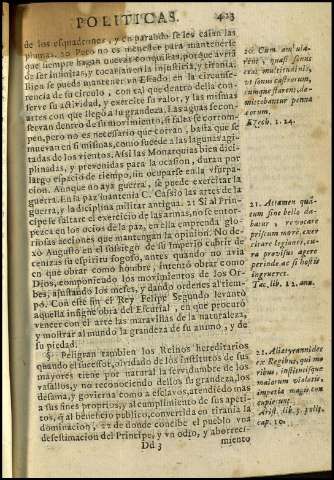 POLITICAS. 423
de los esquadrones, y en parando se les caian las
plumas. 20 Pero no es menester para mantenerse
que siempre hagan nuevas conquistas, porque avria
de ser infinitas, y tocarian en la injusticia, y tirania.
Bien se puede mantener un Estado en la circunfe-
rencia de su circulo, con tal que dentro della con-
serve su actividad, y exercite su valor, y las mismas
artes con que llegò à su grandeza. Las aguas se con-
servan dentro de su movimiento, si falta se corrom-
pen, pero no es necessario que corran, basta que se
muevan en si mismas, como sucede a las lagunas agi-
tadas de los vientos. Assi las Monarquias bien disci-
plinadas, y prevenidas para la ocasion, duran por
largo espacio de tiempo, sin ocuparse en la vsurpa-
cion. Aunque no aya guerra, se puede exercitar la
guerra. En la paz mantenia C. Cassio las artes de la
guerra, y la disciplina militar antigua. 21 Si al Prin-
cipe se faltare el exercicio de las armas, no se entor-
pezca en los ocios de la paz, en ella emprenda glo-
riosas acciones que mantengan la opinion. No de-
xò Augusto en el sossiego de su Imperio cubrir de
cenizas su espiritu fogoso, antes quando no avia
en que obrar como hombre, intentò obrar como
Dios, componiendo los movimientos de los Or-
bes, ajustando los meses, y dando ordenes al tiem-
po. Con este fin el Rey Felipe Segundo levantò
aquella insigne obra del Escurial, en que procurò
vencer con el arte las maravillas de la naturaleza,
y mostrar al mundo la grandeza de su animo, y de
su piedad.
§. Peligran tambien los Reinos hereditarios
quando el sucessor, olvidado de los institutos de sus
mayores tiene por natural la servidumbre de los
vasallos, y no reconociendo dellos su grandeza, los
desama, y govierna como a esclavos, atendiendo mas
a sus fines proprios, y al cumplimiento de sus apeti-
tos, que al beneficio publico, convertida en tirania la
dominacion, 22 de donde concibe el pueblo vna
desestimacion del Principe, y vn odio, y aborreci-
Dd 3 miento
20. Cum ambula-
rent, quasi sonus
erat multitudinis,
ut sonus castrorum,
cumque starent, de-
mittebantur penna
eorum.
Ezech. 1. 24.
21. Attamen quã-
tum sine bello da-
batur, revocare
priscum morẽ, exer-
citare legiones, cu-
ra provisus agere
perinde ac si hostis
ingrueret.
Tac. lib. 12. ann.